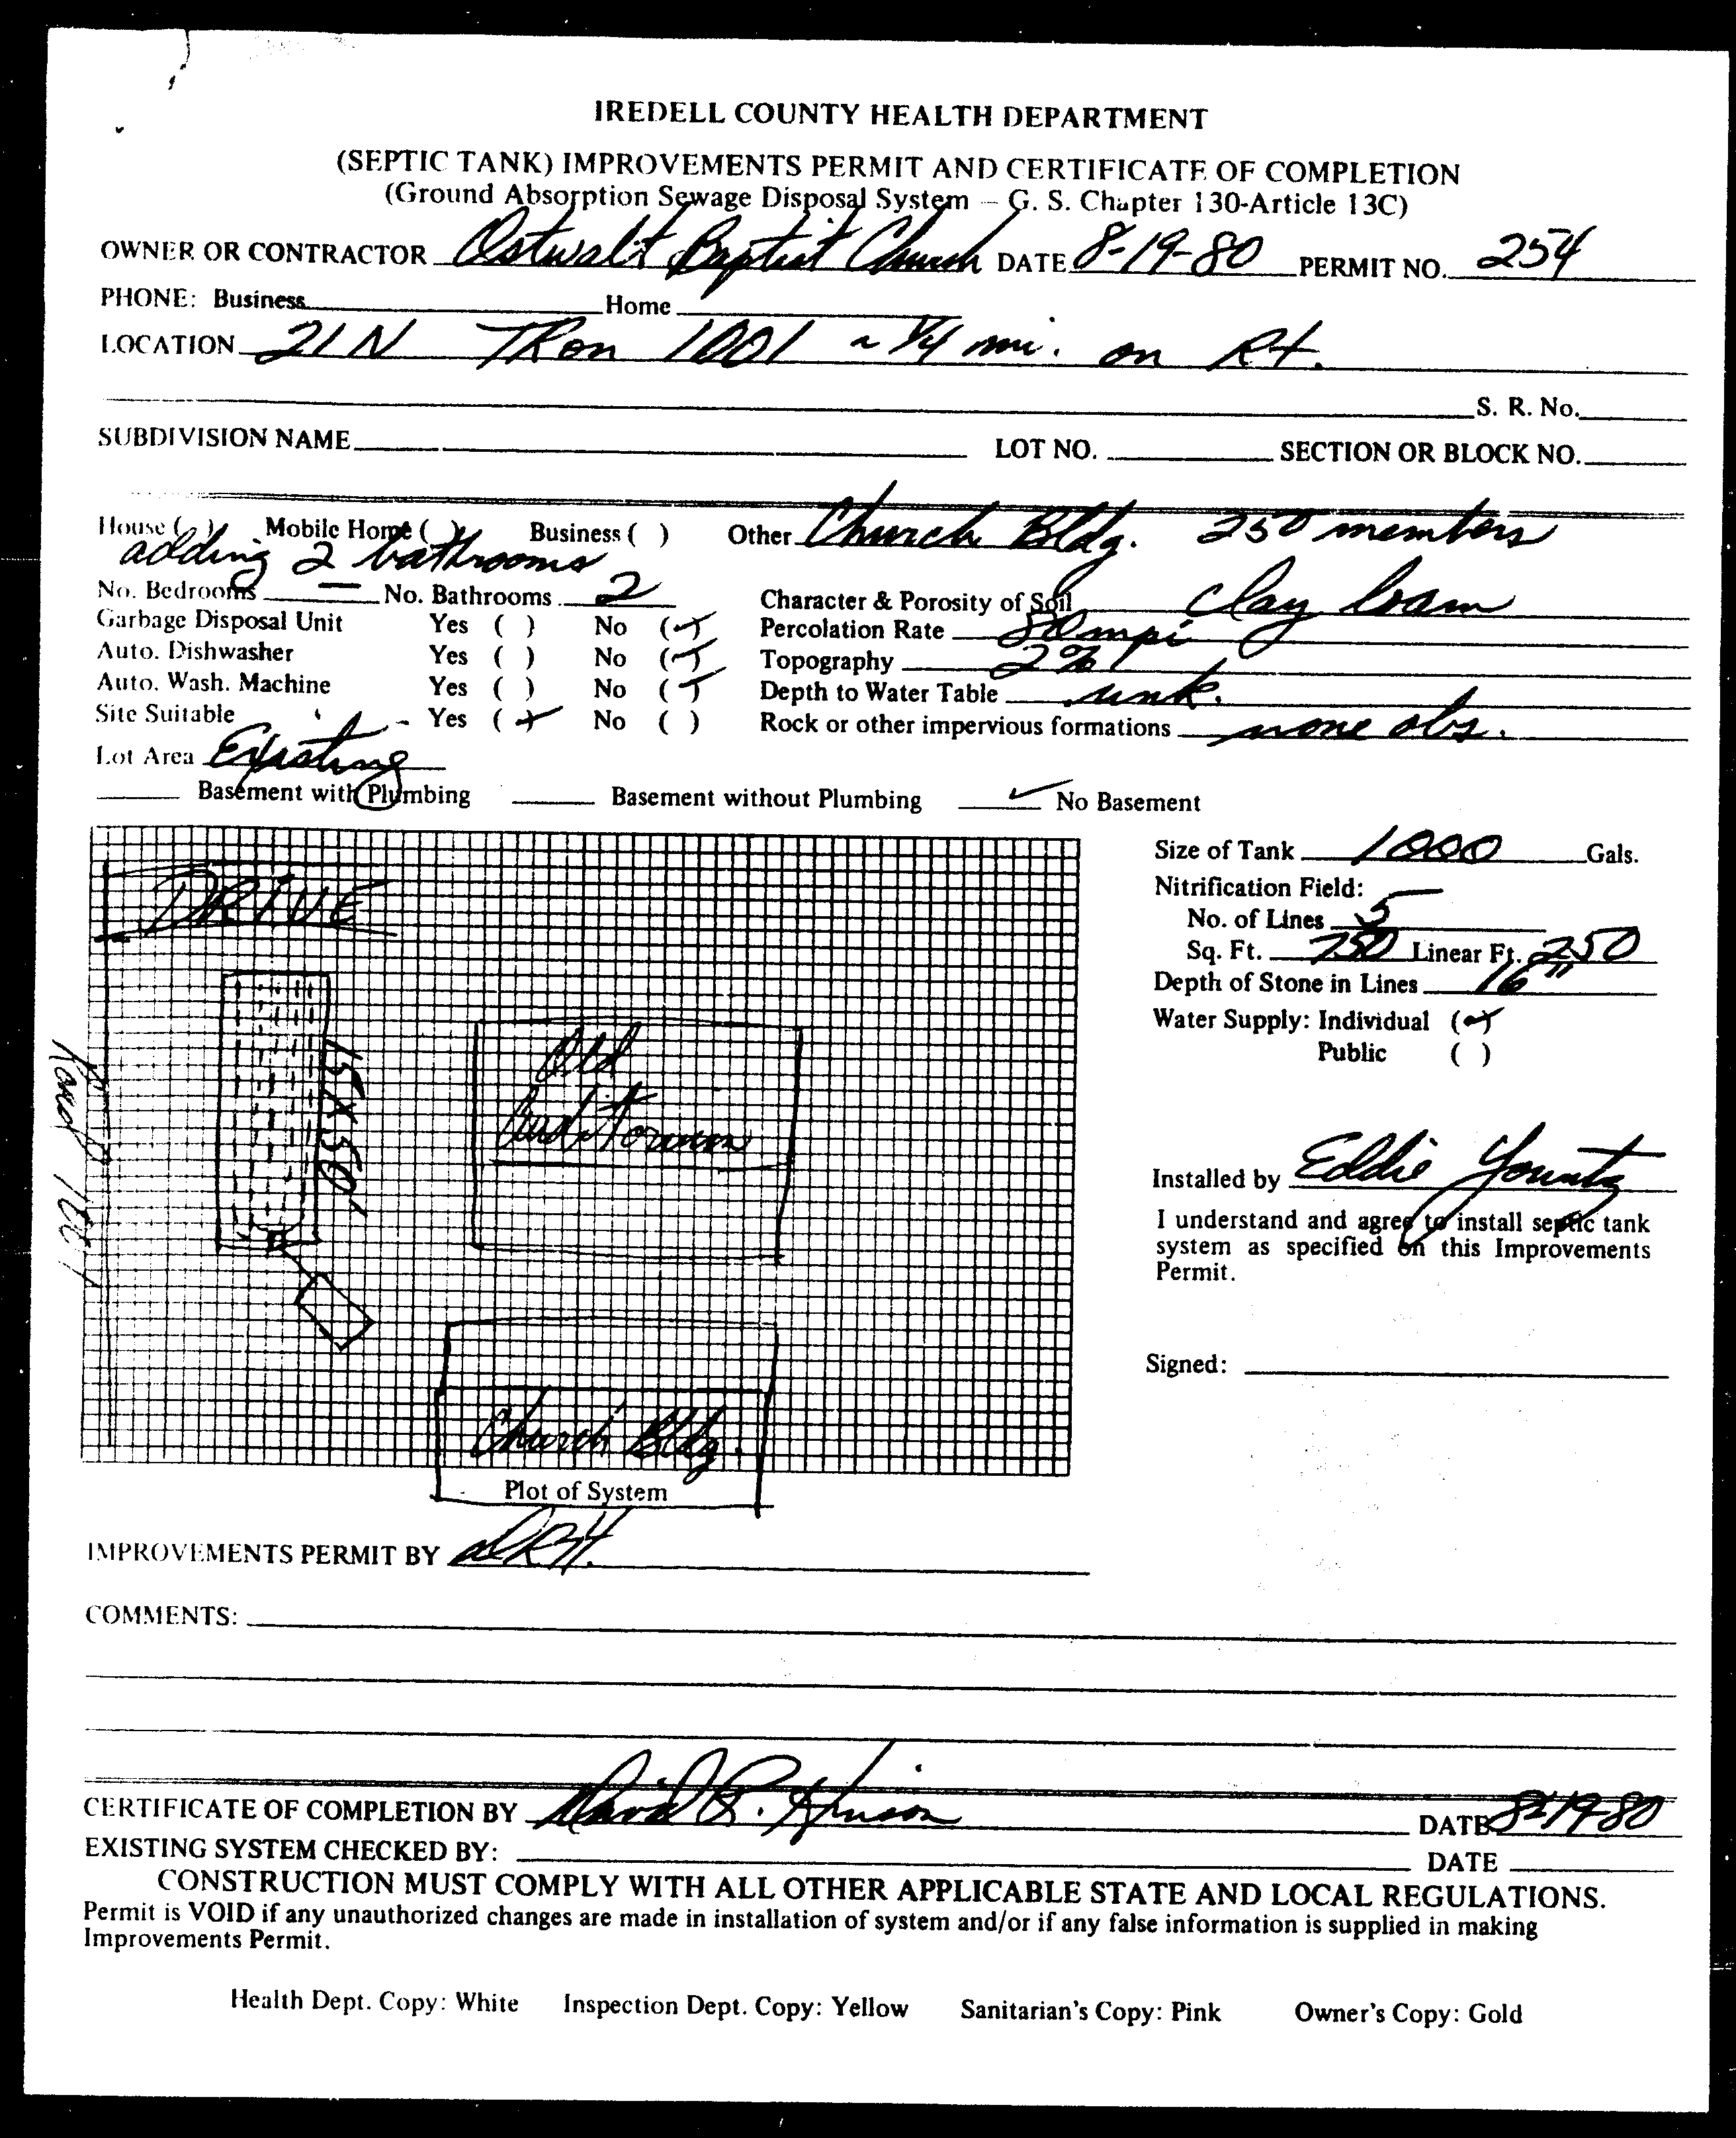 IREDELL COUNTY HEALTH DEPARTMENT
(SEPTIC TANK) IMPROVEMENTS PERMIT AND CERTIFICATE OF COMPLETION
(Ground Absorption Sewage Disposal System – G. S. Chapter 130-Article 13C)
OWNER OR CONTRACTOR Ostwalt Baptist Church DATE 8-19-80 PERMIT NO. 254
PHONE: Business Home
LOCATION 21 N TR on 1001 ~ 1/4 mi. on Rt.
S. R. No.
SUBDIVISION NAME LOT NO. SECTION OR BLOCK NO.
House ( ) Mobile Home ( ) Business ( ) Other Church Bldg. 250 members
adding 2 bathrooms
No. Bedrooms — No. Bathrooms 2 Character & Porosity of Soil clay loam
Garbage Disposal Unit Yes ( ) No (✓) Percolation Rate mpi
Auto. Dishwasher Yes ( ) No (✓) Topography 2%
Auto. Wash. Machine Yes ( ) No (✓) Depth to Water Table unk.
Site Suitable Yes (✓) No ( ) Rock or other impervious formations none obs.
Lot Area Existing
Basement with Plumbing Basement without Plumbing ✓ No Basement
Size of Tank 1000 Gals.
Nitrification Field:
No. of Lines 5
Sq. Ft. 750 Linear Ft. 250
Depth of Stone in Lines 16"
Water Supply: Individual (✓)
Public ( )
DRIVE
15 X 50'
Old
Auditorium
Road 1001
Church Bldg.
Plot of System
Installed by Eddie Yountz
I understand and agree to install septic tank
system as specified on this Improvements
Permit.
Signed:
IMPROVEMENTS PERMIT BY DRH.
COMMENTS:
CERTIFICATE OF COMPLETION BY David R. Hinson DATE 8-19-80
EXISTING SYSTEM CHECKED BY: DATE
CONSTRUCTION MUST COMPLY WITH ALL OTHER APPLICABLE STATE AND LOCAL REGULATIONS.
Permit is VOID if any unauthorized changes are made in installation of system and/or if any false information is supplied in making
Improvements Permit.
Health Dept. Copy: White Inspection Dept. Copy: Yellow Sanitarian's Copy: Pink Owner's Copy: Gold